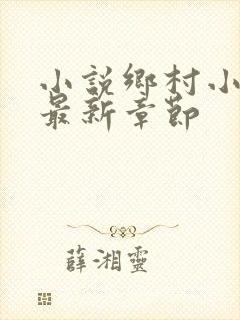 小説鄉村小
最新章節
薛湘靈